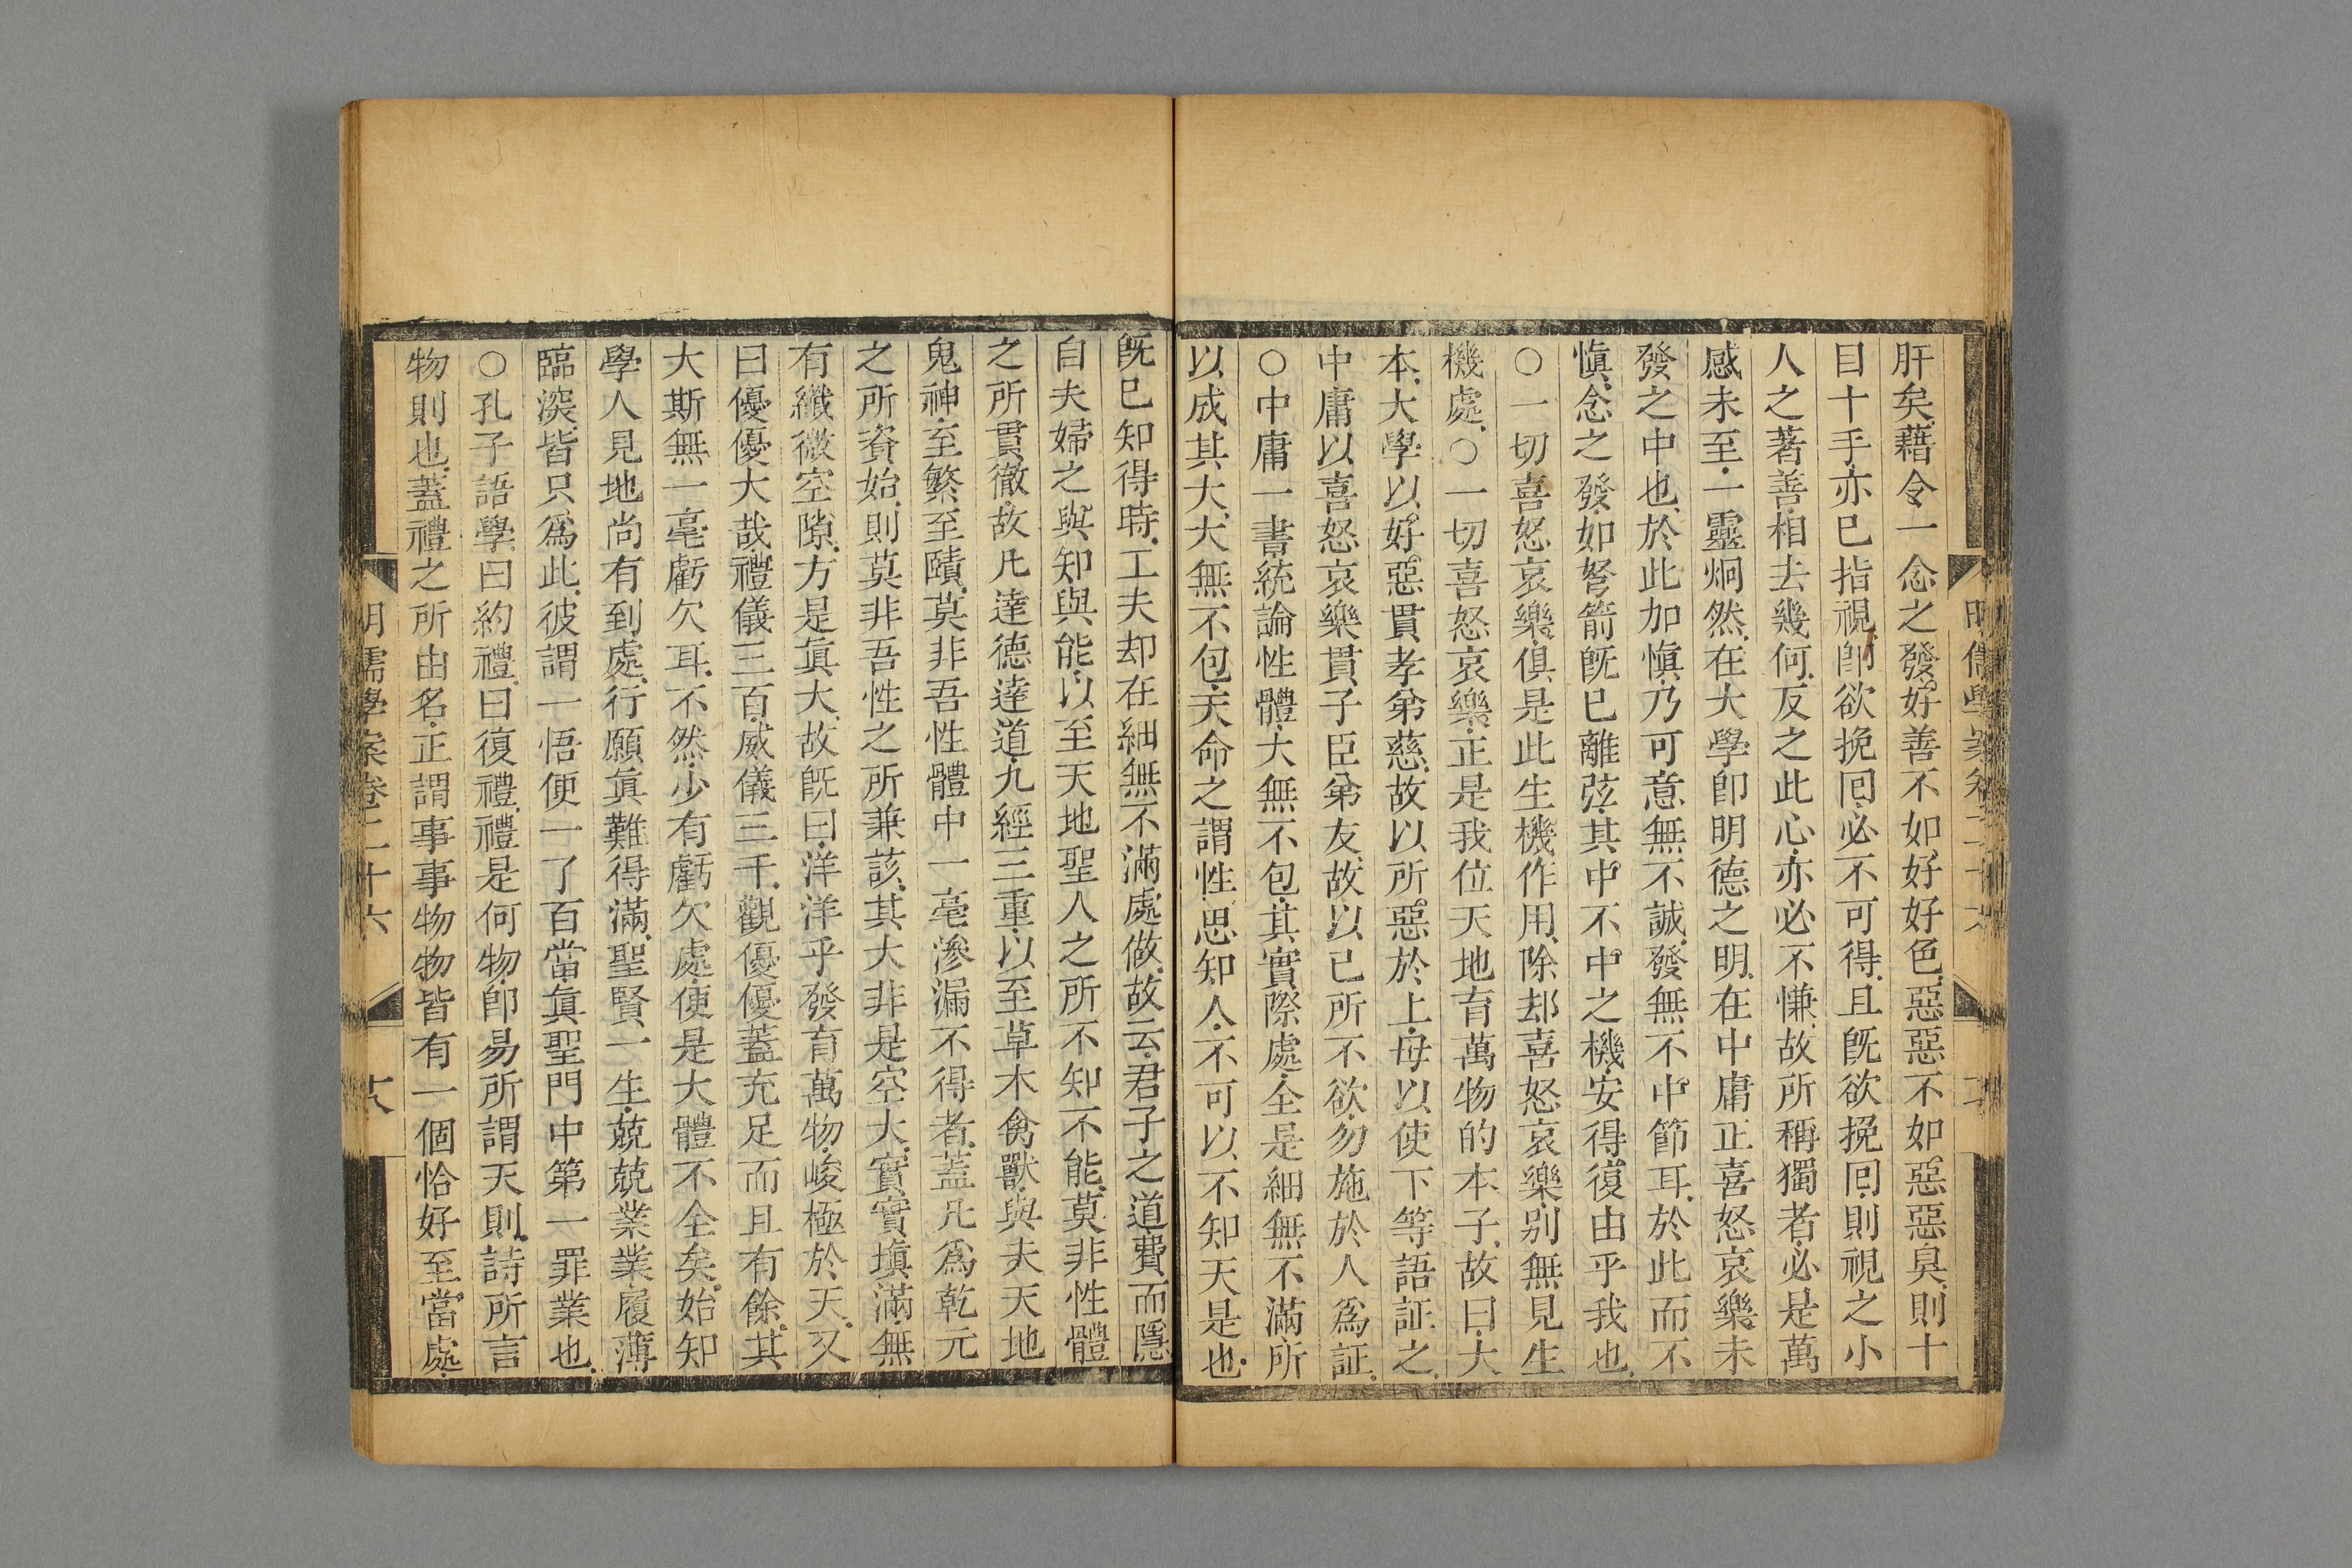 肝矣藉令一念之發好善不如好好色惡惡不如惡惡臭則十
目十手亦已指視卽欲挽囘必不可得且旣欲挽囘則視之小
人之著善相去幾何反之此心亦必不慊故所稱獨者必是萬
感未至一靈炯然在大學卽明德之明在中庸正喜怒哀樂未
發之中也於此加愼乃可意無不誠發無不中節耳於此而不
愼念之發如弩箭旣已離弦其中不中之機安得復由乎我也
○一切喜怒哀樂俱是此生機作用除却喜怒哀樂別無見生
機處○一切喜怒哀樂正是我位天地育萬物的本子故曰大
本大學以好惡貫孝弟慈故以所惡於上毋以使下等語証之
中庸以喜怒哀樂貫子臣弟友故以己所不欲勿施於人爲証
○中庸一書統論性體大無不包其實際處全是細無不滿所
以成其大大無不包天命之謂性思知人不可以不知天是也
旣已知得時工夫却在細無不滿處做故云君子之道費而隱
自夫婦之與知與能以至天地聖人之所不知不能莫非性體
之所貫徹故凡達德達道九經三重以至草木禽獸與夫天地
鬼神至繁至賾莫非吾性體中一毫滲漏不得者蓋凡爲乾元
之所資始則莫非吾性之所兼該其大非是空大實實塡滿無
有纖微空隙方是眞大故旣曰洋洋乎發育萬物峻極於天又
曰優優大哉禮儀三百威儀三千觀優優蓋充足而且有餘其
大斯無一毫虧欠耳不然少有虧欠處便是大體不全矣始知
學人見地尚有到處行願眞難得滿聖賢一生兢兢業業履薄
臨深皆只爲此彼謂一悟便一了百當眞聖門中第一罪業也
○孔子語學曰約禮曰復禮禮是何物卽易所謂天則詩所言
物則也蓋禮之所由名正謂事事物物皆有一個恰好至當處
明儒學案卷二十六